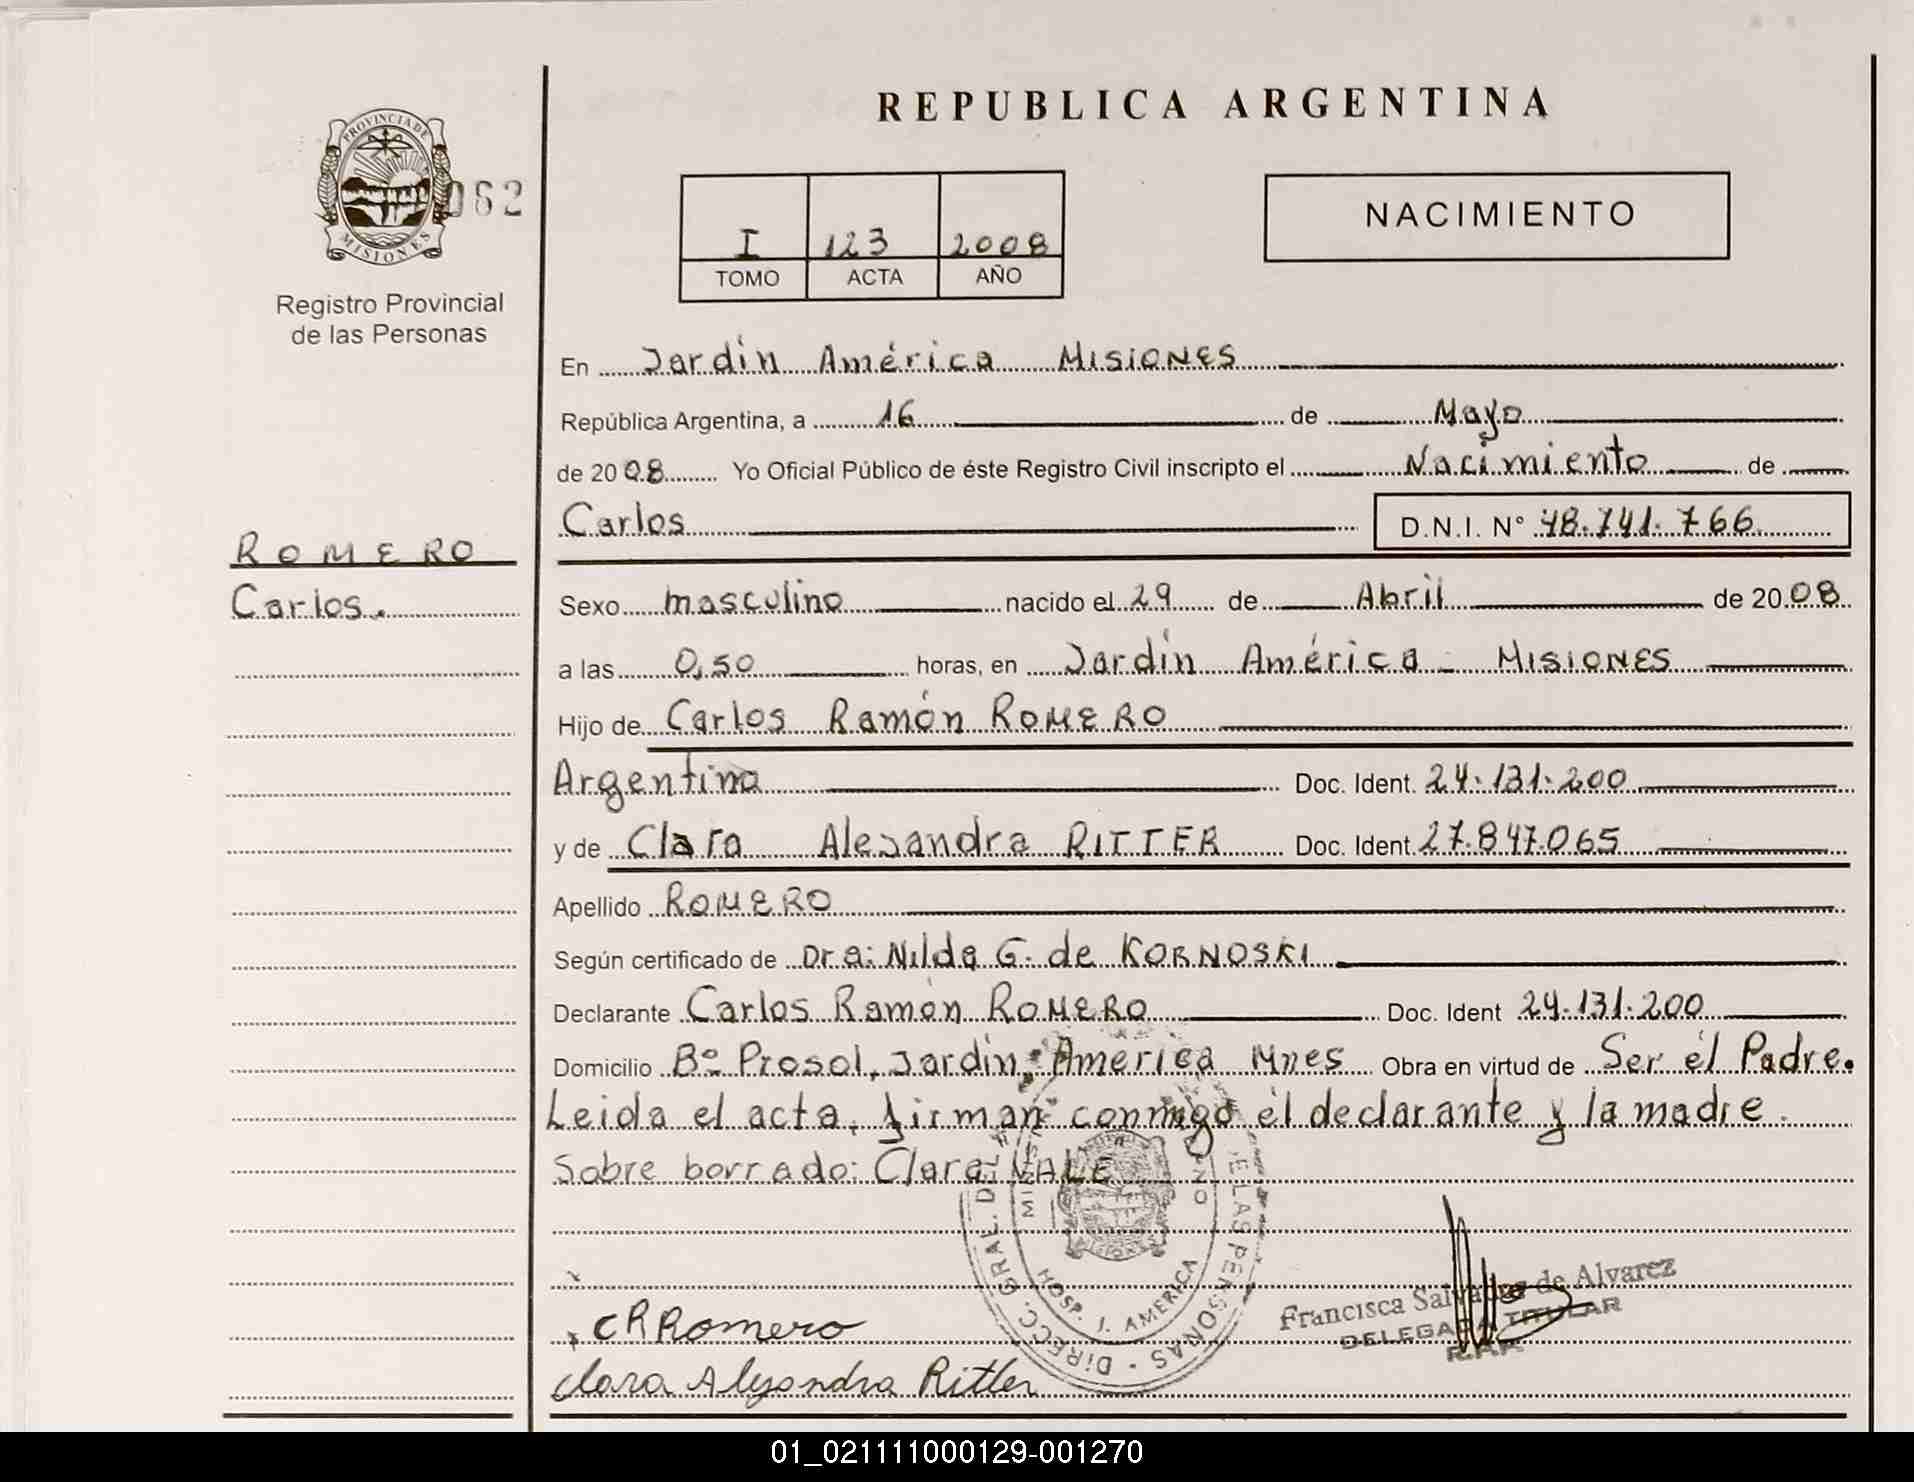 REPUBLICA ARGENTINA
PROVINCIA DE
MISIONES
062
Registro Provincial
de las Personas
I 123 2008
TOMO ACTA AÑO
NACIMIENTO
En Jardín América Misiones
República Argentina, a 16 de Mayo
de 2008 Yo Oficial Público de éste Registro Civil inscripto el Nacimiento de
Carlos D.N.I. N° 48.741.766
ROMERO
Carlos.
Sexo masculino nacido el 29 de Abril de 2008
a las 0,50 horas, en Jardín América - Misiones
Hijo de Carlos Ramón ROMERO
Argentina Doc. Ident. 24.131.200
y de Clara Alejandra RITTER Doc. Ident. 27.847.065
Apellido ROMERO
Según certificado de Dra: Nilda G. de KORNOSKI
Declarante Carlos Ramón ROMERO Doc. Ident 24.131.200
Domicilio B° Prosol, Jardín América Mnes Obra en virtud de Ser él Padre.
Leida el acta, firman conmigo él declarante y la madre.
Sobre borrado: Clara VALE
DIRECC. GRAL. DEL DE LAS PERSONAS
HOSP. J. AMERICA
Francisca Salvador de Alvarez
DELEGADA TITULAR
R.P.P.
CRRomero
Clara Alejandra Ritter
01_021111000129-001270